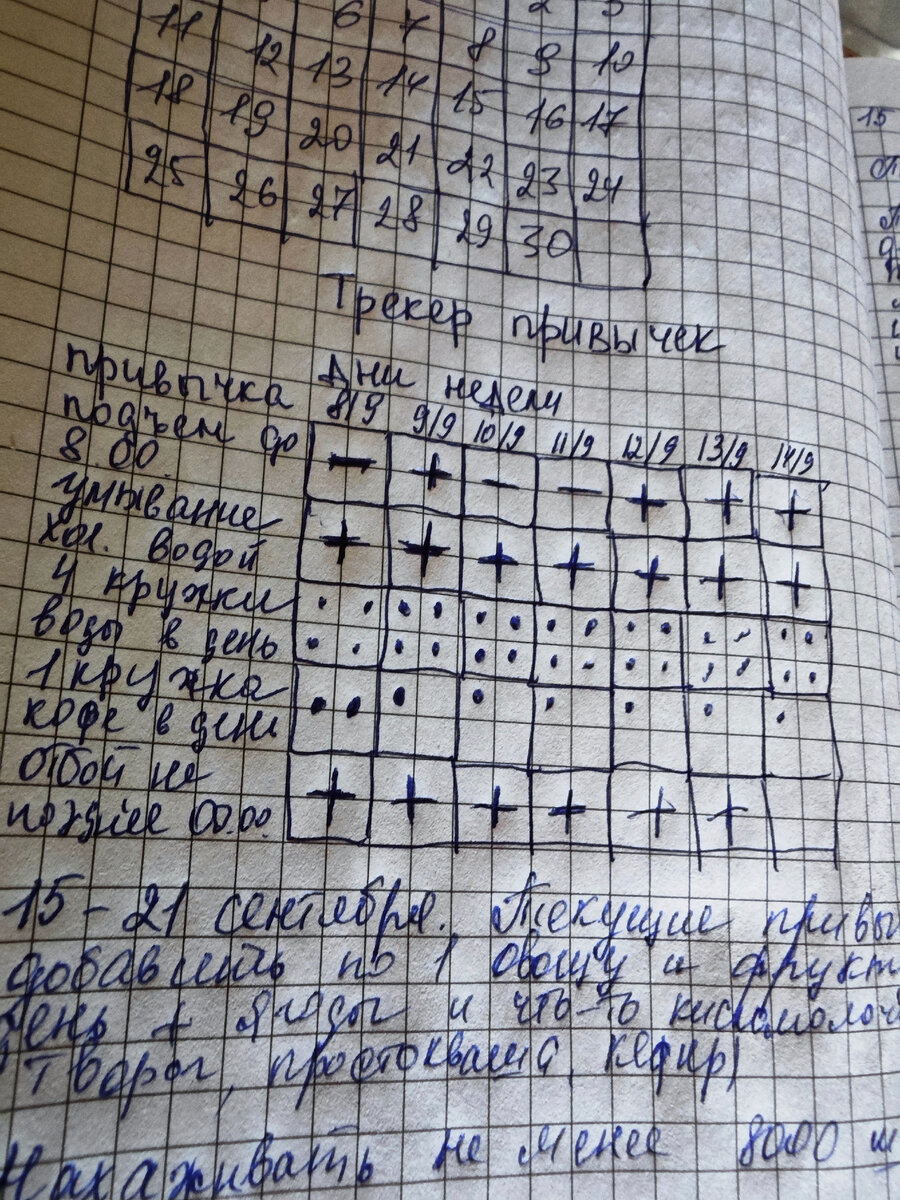 6 7 2 3
11 12 13 14 8 9 10
18 19 20 21 15 16 17
25 26 27 28 22 23 24
29 30
Трекер привычек
привычка Дни недели
подъем до 8.00. 8/9 9/9 10/9 11/9 12/9 13/9 14/9
− + − − + + +
умывание
хол. водой + + + + + + +
4 кружки
воды в день
1 кружка
кофе в день
отбой не
позднее 00.00. + + + + + +
15-21 сентября. Текущие привы
добавить по 1 овощу и фрукт
день + ягоды и что-то кисломолоч
творог, простокваша, кефир)
Нахаживать не менее 8000 ш
15